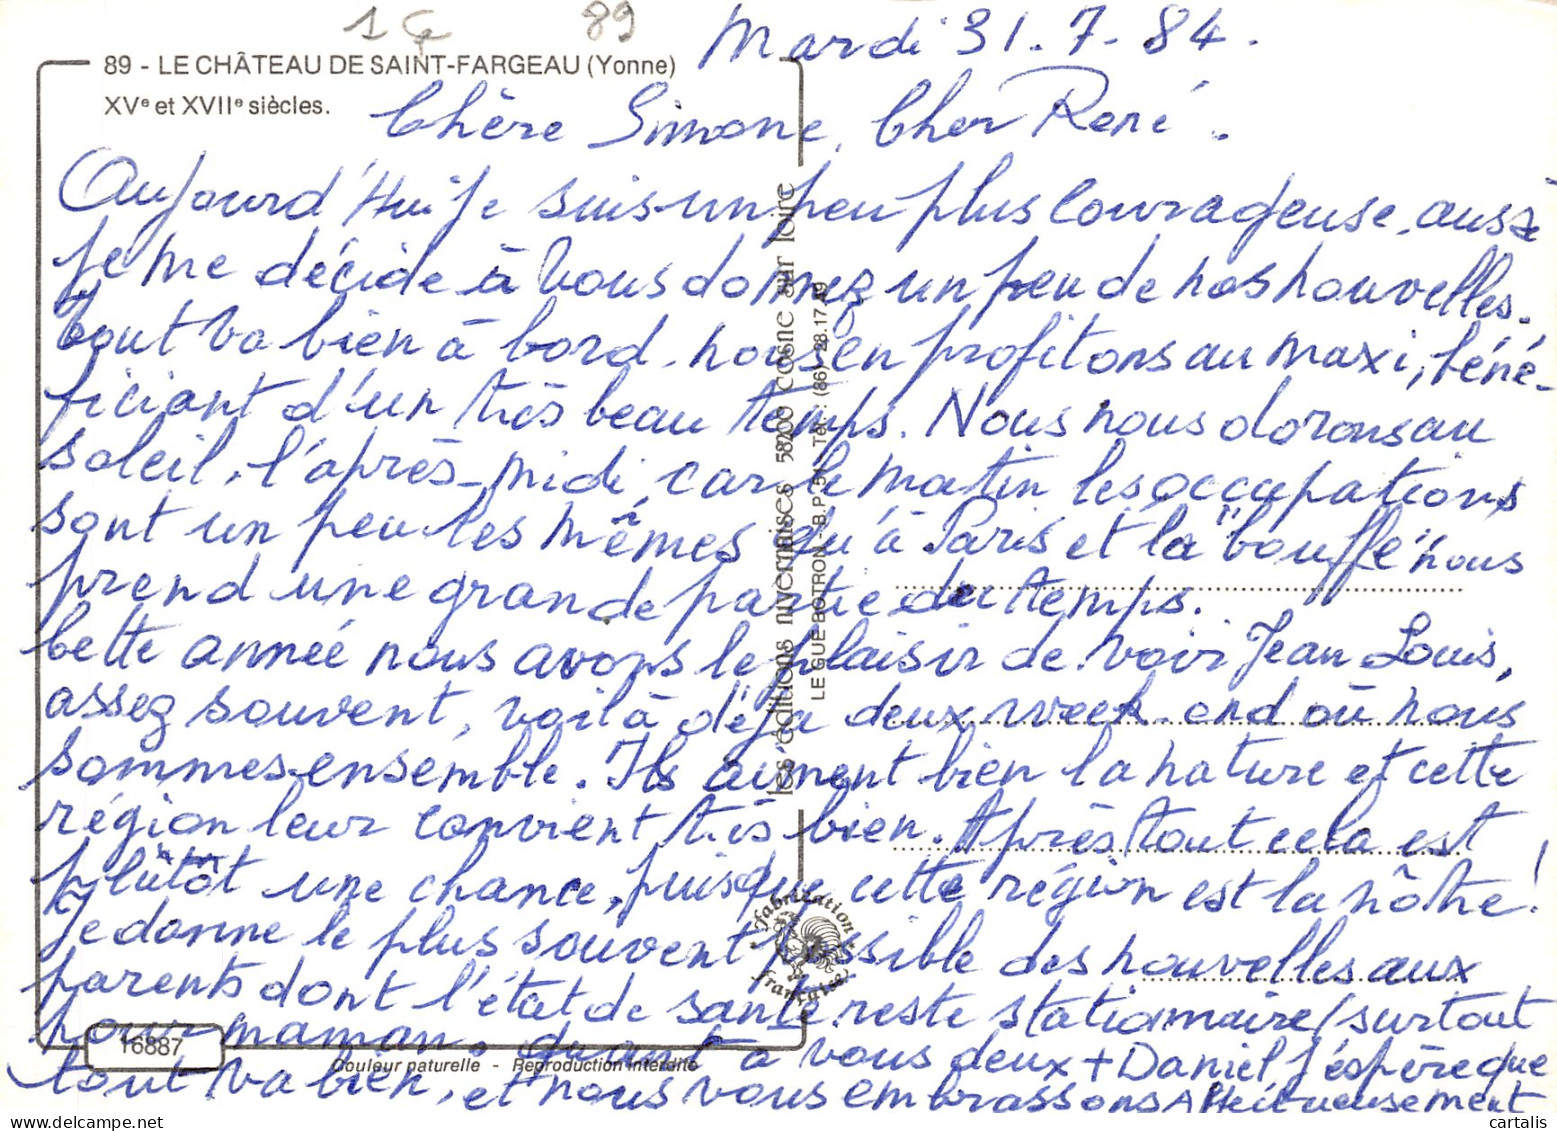 1 ç 89
Mardi 31.7.84.
89 - LE CHÂTEAU DE SAINT-FARGEAU (Yonne)
XVe et XVIIe siècles.
Chère Simone, Cher René.
Aujourd'Hui je suis un peu plus courageuse, aussi
je me décide à vous donner un peu de nos nouvelles.
Tout va bien à bord, nous en profitons au maxi, béné-
ficiant d'un très beau temps. Nous nous dorons au
soleil, l'après-midi, car le matin les occupations
sont un peu les mêmes qu'à Paris et la "bouffe" nous
prend une grande partie du temps.
Cette année nous avons le plaisir de voir Jean Louis,
assez souvent, voilà déja deux week-end où nous
sommes ensemble. Ils aiment bien la nature et cette
région leur convient très bien. Après tout cela est
plutôt une chance, puisque cette région est la nôtre!
Je donne le plus souvent possible des nouvelles aux
parents dont l'état de santé reste stationnaire (surtout
pour maman. Quant à vous deux + Daniel j'espère que
tout va bien, et nous vous embrassons Affectueusement
les éditions nivernaises 58200 cosne sur loire
LE GUÉ BOTRON - B.P. 51 - Tél. : (86) 28.17.49
fabrication française
16887
Couleur naturelle - Reproduction interdite
cartalis